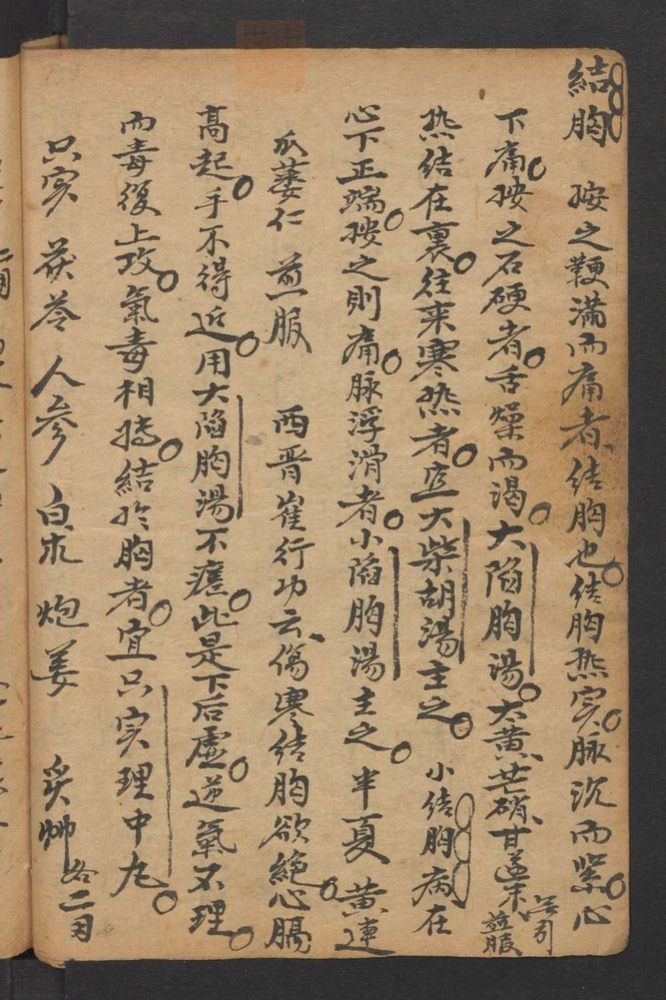 結胸 按之鞕滿而痛者、結胸也。結胸热实。脉沉而緊。心
下痛。按之石硬者。舌燥而渴。大陷胸湯。大黄、芒硝、甘遂末
热结在裏。往来寒热者。宜大柴胡湯主之。 小结胸病在
心下正端。按之則痛。脉浮滑者。小陷胸湯主之。半夏 黄連
瓜蒌仁 煎服 西晋崔行功云、傷寒结胸欲絶。心膈
高起。手不得近。用大陷胸湯不瘥。此是下后虚逆氣不理。
而毒復上攻。氣毒相搏。結於胸者。宜只实理中丸。
只实 茯苓 人参 白朮 炮姜 炙艸 各二円